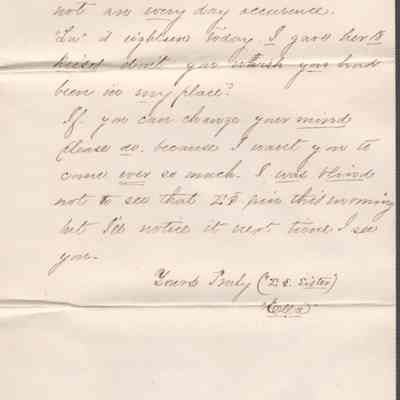 not an every day occurence.
"Lu" is eighteen today. I gave her 18
kisses don't you wish you had
been in my place?
If you can change your mind
please do. because I want you to
come ever so much. I was blind
not to see that pin this morning
but I'll notice it next time I see
you.
Yours Truly (Σ. Σ. Sister)
"Ella"